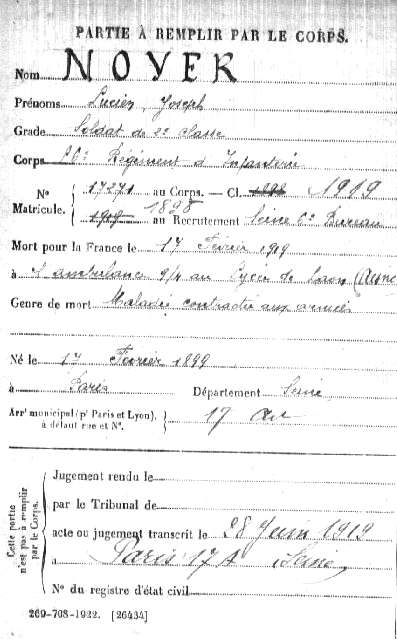 PARTIE À REMPLIR PAR LE CORPS.
Nom NOYER
Prénoms Lucien, Joseph
Grade Soldat de 2e classe
Corps Régiment d'Infanterie
No 17271 au Corps. — Cl. 1919
Matricule. 1898 au Recrutement Seine 6e Bureau
Mort pour la France le 17 Février 1919
à l'ambulance 9/4 au Lycée de Laon (Aisne)
Genre de mort Maladie contractée aux armées
Né le 17 Février 1899
à Paris Département Seine
Arrt municipal (pr Paris et Lyon), à défaut rue et No. 17 Arr
Cette partie n'est pas à remplir par le Corps.
Jugement rendu le
par le Tribunal de
acte ou jugement transcrit le 28 Juin 1919
à Paris 17 A Seine
No du registre d'état civil
269-708-1922. [26434]